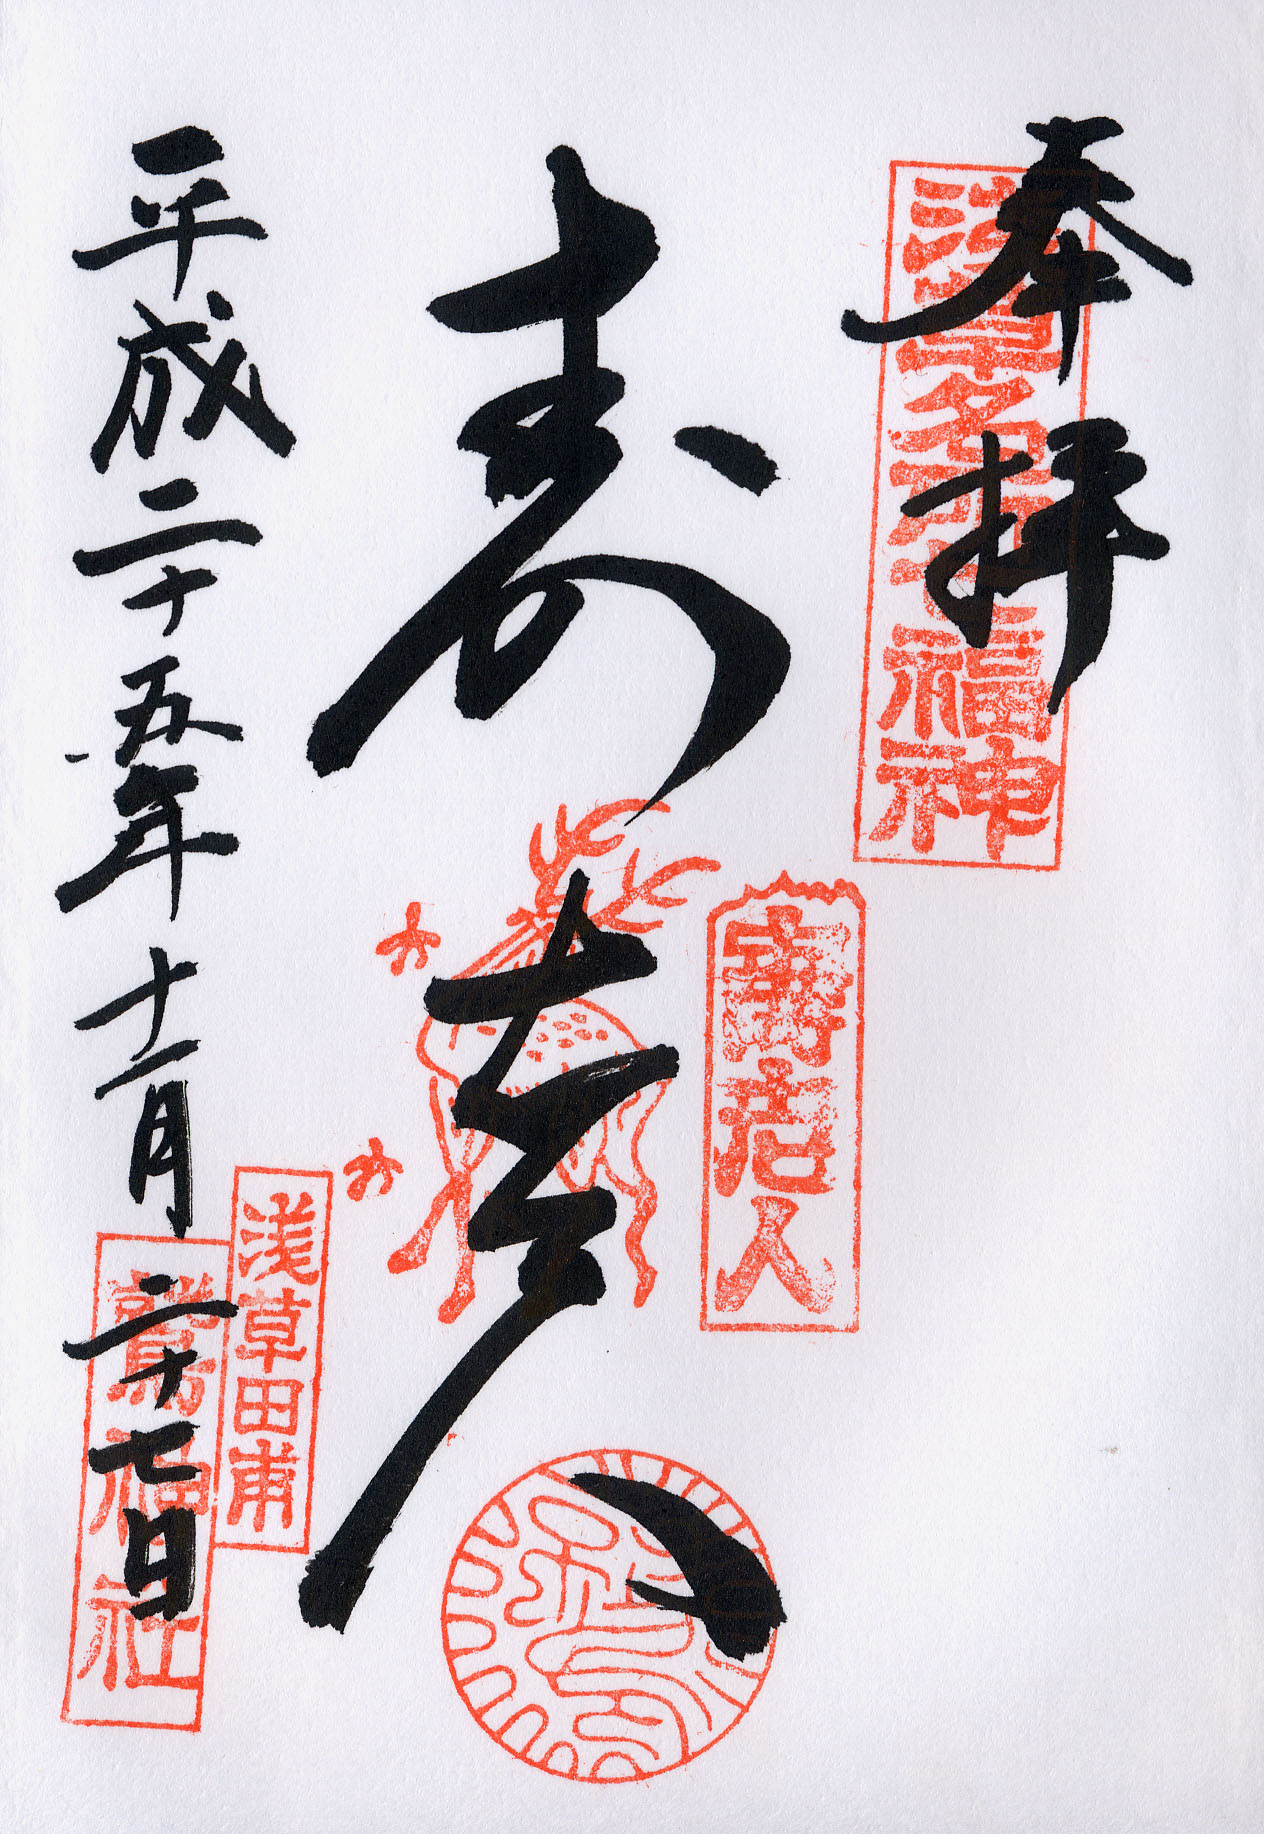 奉拝
浅草名所七福神
寿老人
寿老人
浅草田甫
鷲神社
平成二十五年十一月二十七日